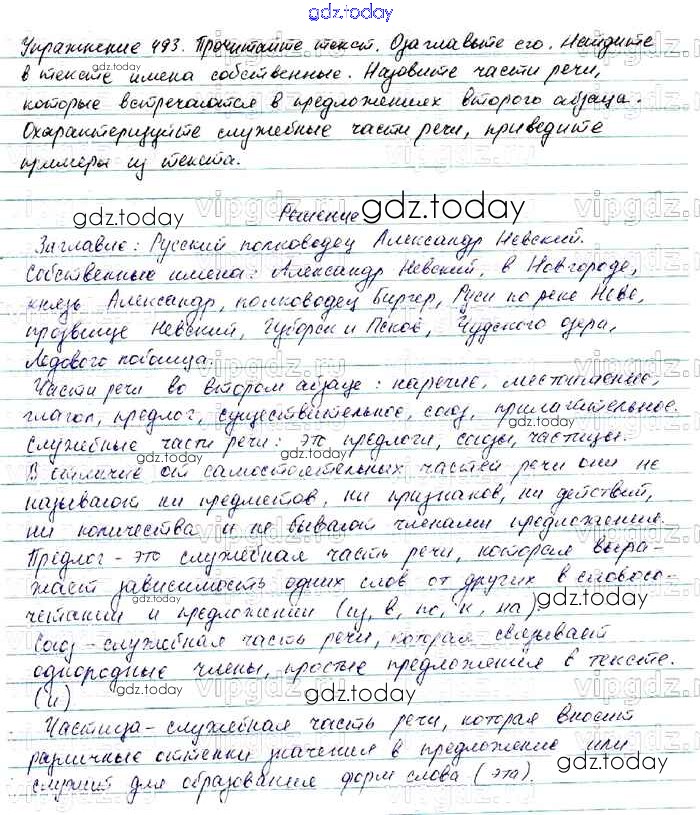 gdz.today
Упражнение 493. Прочитайте текст. Озаглавьте его. Найдите
в тексте имена собственные. Назовите части речи,
которые встречаются в предложениях второго абзаца.
Охарактеризуйте служебные части речи, приведите
примеры из текста.
Решение
Заглавие: Русский полководец Александр Невский.
Собственные имена: Александр Невский, в Новгороде,
князь Александр, полководец Биргер, Руси по реке Неве,
прозвище Невский, Изборск и Псков, Чудского озера,
Ледового побоища.
Части речи во втором абзаце: наречие, местоимение,
глагол, предлог, существительное, союз, прилагательное.
Служебные части речи: это предлоги, союзы, частицы.
В отличие от самостоятельных частей речи они не
называют ни предметов, ни признаков, ни действий,
ни количества и не бывают членами предложения.
Предлог - это служебная часть речи, которая выра-
жает зависимость одних слов от других в словосо-
четании и предложении (из, в, по, к, на)
Союз - служебная часть речи, которая связывает
однородные члены, простые предложения в тексте.
(и)
Частица - служебная часть речи, которая вносит
различные оттенки значения в предложение или
служит для образования форм слова (эта).